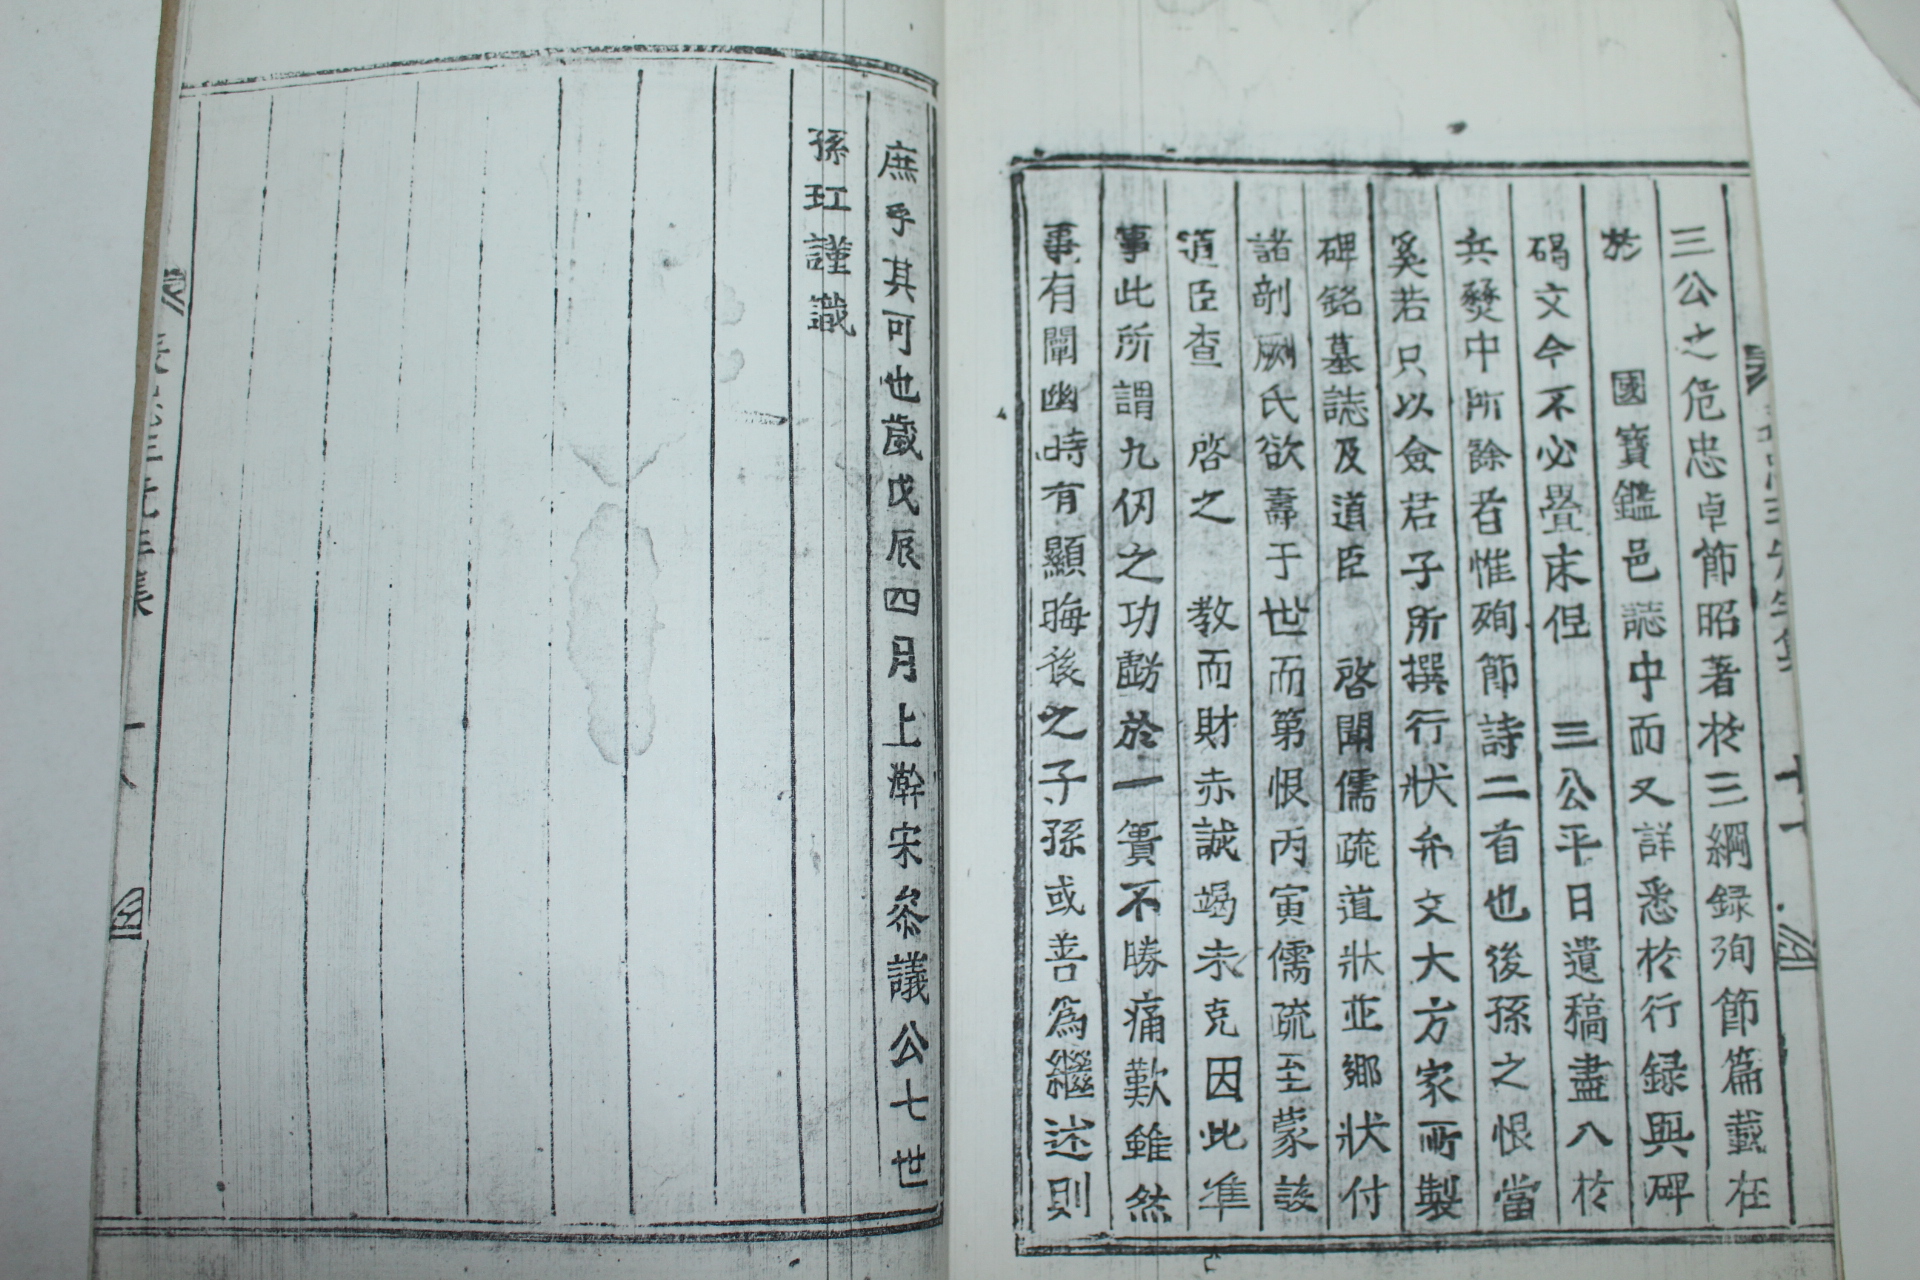 三公之危忠卓節昭著於三綱録殉節篇載在
於 國寶鑑邑誌中而又詳悉於行録與碑
碣文今不必疊床但 三公平日遺稿盡入於
兵燹中所餘者惟殉節詩二首也後孫之恨當
奚若只以僉君子所撰行狀弁文大方家所製
碑銘墓誌及道臣 啓聞儒疏道狀並鄉狀付
諸剞劂氏欲壽于世而第恨丙寅儒疏至蒙該
道臣查 啓之 教而財赤誠竭未克因此準
事此所謂九仞之功虧於一簣不勝痛歎雖然
事有闡幽時有顯晦後之子孫或善爲繼述則
庶乎其可也歲戊辰四月上澣宋叅議公七世
孫玒謹識